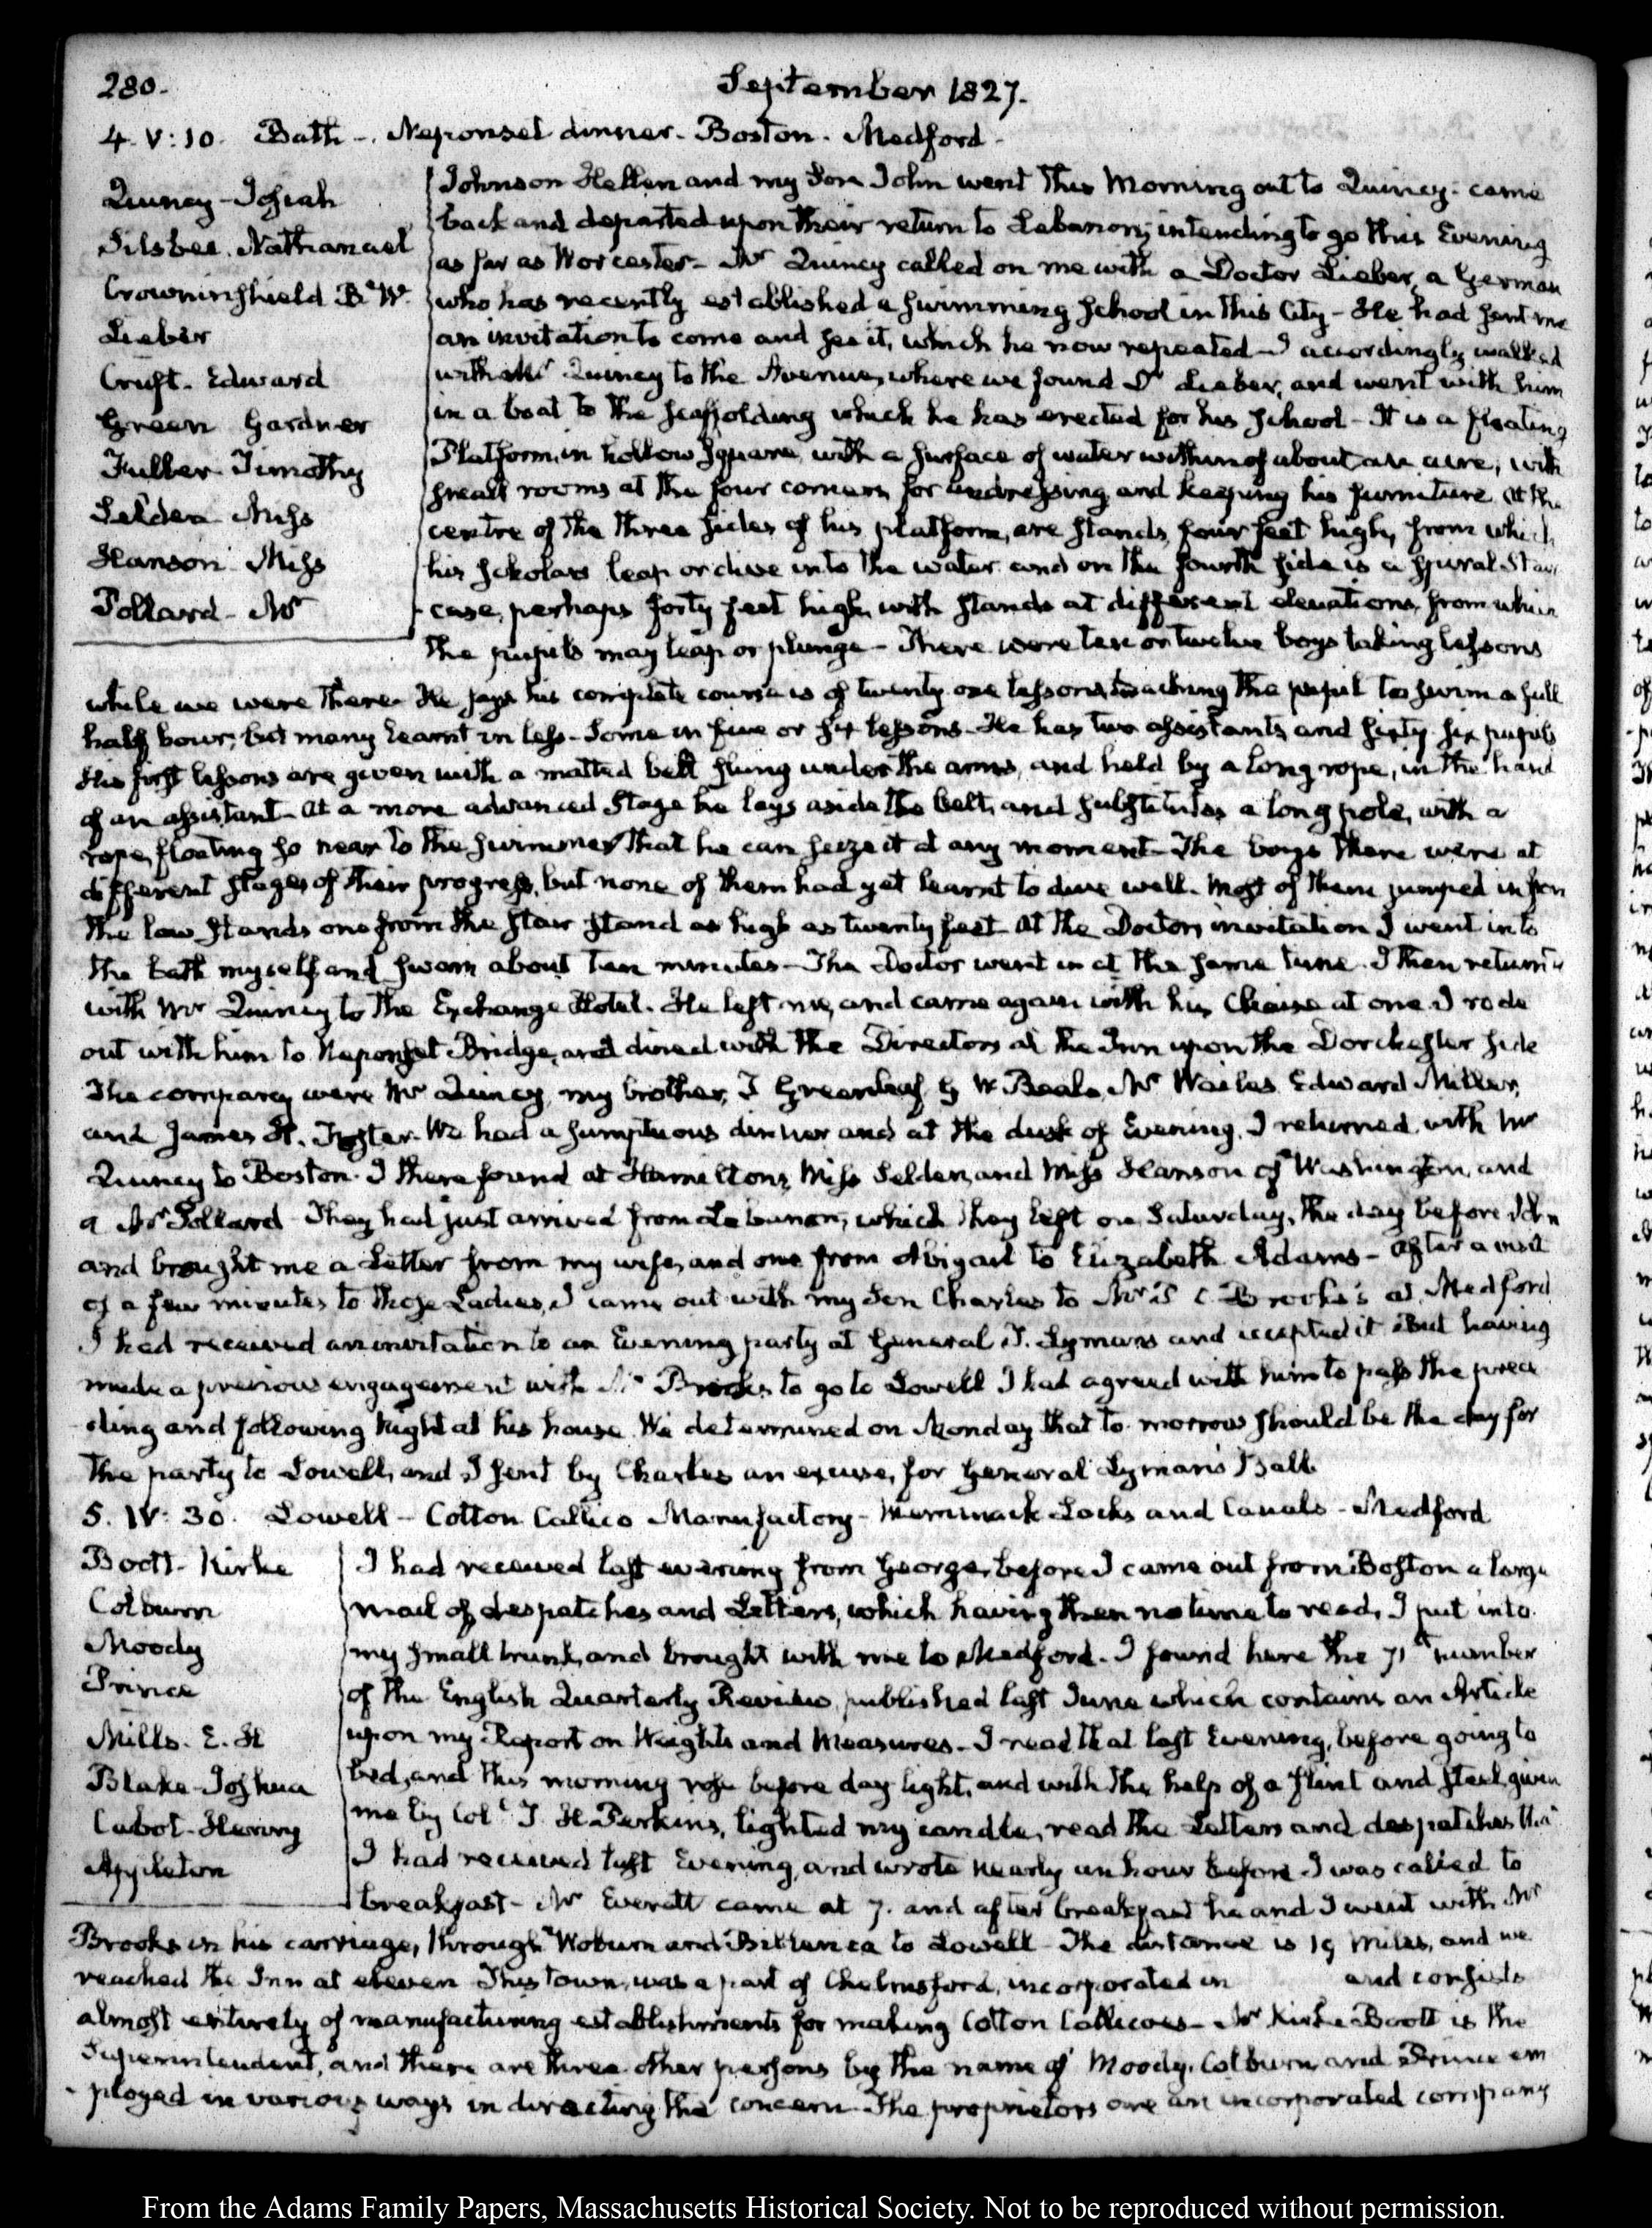 280.
September 1827.
4. V: 10. Bath -. Neponset dinner - Boston. Medford -
Quincy - Josiah
Silsbee. Nathanael
Crowninshield B. W.
Lieber
Cruft. Edward
Green Gardner
Fuller. Timothy
Selden Miss
Hanson Miss
Pollard - Mr
Johnson Hellen and my Son John went this Morning out to Quincy. came
back and departed upon their return to Lebanon; intending to go this Evening
as far as Worcester - Mr Quincy called on me with a Doctor Lieber, a German
who has recently established a swimming school in this City - He had sent me
an invitation to come and see it, which he now repeated - I accordingly walked
with Mr Quincy to the Avenue, where we found Dr Lieber, and went with him
in a boat to the scaffolding which he has erected for his school - It is a floating
Platform, in hollow square, with a surface of water within of about an acre, with
small rooms at the four corners for undressing and keeping his furniture at the
centre of the three sides of his platform, are stands, four feet high, from which
his scholars leap or dive into the water and on the fourth side is a spiral Stair
case, perhaps forty feet high, with stands at different elevations, from which
the pupils may leap or plunge - There were ten or twelve boys taking lessons
while we were there. He says his complete course is of twenty one lessons, teaching the pupil to swim a full
half hour; but many learnt in less - Some in five or six lessons - He has two assistants, and sixty six pupils
His first lessons are given with a matted belt slung under the arms, and held by a long rope, in the hand
of an assistant - at a more advanced Stage he lays aside the belt, and substitutes a long pole, with a
rope, floating so near to the swimmer that he can seize it at any moment - The boys there were at
different stages of their progress, but none of them had yet learnt to dive well. Most of them jumped in from
the low stands one from the stair stand as high as twenty feet. At the Doctors invitation I went into
the bath myself and swam about ten minutes - The Doctor went in at the same time. I then return'd
with Mr Quincy to the Exchange Hotel. He left me, and came again with his Chaise at one. I rode
out with him to Neponset Bridge, and dined with the Directors at the Inn upon the Dorchester side
The company were Mr Quincy, my brother, J Greenleaf, G W Beale, Mr Wailes Edward Miller,
and James H. Foster. We had a sumptuous dinner and at the dusk of Evening, I returned with Mr
Quincy to Boston. I there found at Hamiltons, Miss Selden, and Miss Hanson of Washington, and
a Mr Pollard They had just arrived from Lebanon, which they left on Saturday, the day before John
and brought me a Letter from my wife, and one from Abigail to Elizabeth Adams - after a visit
of a few minutes to these Ladies, I came out with my Son Charles to Mr P C. Brooks's at Medford
I had received an invitation to an Evening party at General T. Lyman's and accepted it But having
made a previous engagement with Mr Brooks to go to Lowell I had agreed with him to pass the prece
ding and following Night at his house. We determined on Monday that to-morrow should be the day for
the party to Lowell, and I sent by Charles an excuse, for General Lyman's Ball.
5. IV: 30. Lowell - Cotton Callico Manufactory - Merrimack Locks and Canals - Medford
Boott - Kirke
Colburn
Moody
Prince
Mills. E. H
Blake - Joshua
Cabot - Henry
Appleton
I had received last evening from George, before I came out from Boston a large
mail of despatches and Letters, which having then no time to read, I put into
my small trunk, and brought with me to Medford. I found here the 71st number
of the English Quarterly Review, published last June which contains an Article
upon my Report on Weights and Measures - I read that last Evening, before going to
bed, and this morning rose before day light, and with the help of a flint and steel given
me by Col T. H. Perkins, lighted my candle, read the Letters and despatches that
I had received last Evening, and wrote nearly an hour before I was called to
breakfast - Mr Everett came at 7. and after breakfast he and I went with Mr
Brooks in his carriage, through Woburn and Billerica to Lowell - The distance is 19 miles, and we
reached the Inn at eleven This town, was a part of Chelmsford, incorporated in and consists
almost entirely of manufacturing establishments for making Cotton Callicoes - Mr Kirke Boott is the
Superintendent, and there are three other persons by the name of Moody, Colburn, and Prince em
-ployed in various ways in directing the concern. The proprietors are an incorporated company
From the Adams Family Papers, Massachusetts Historical Society. Not to be reproduced without permission.